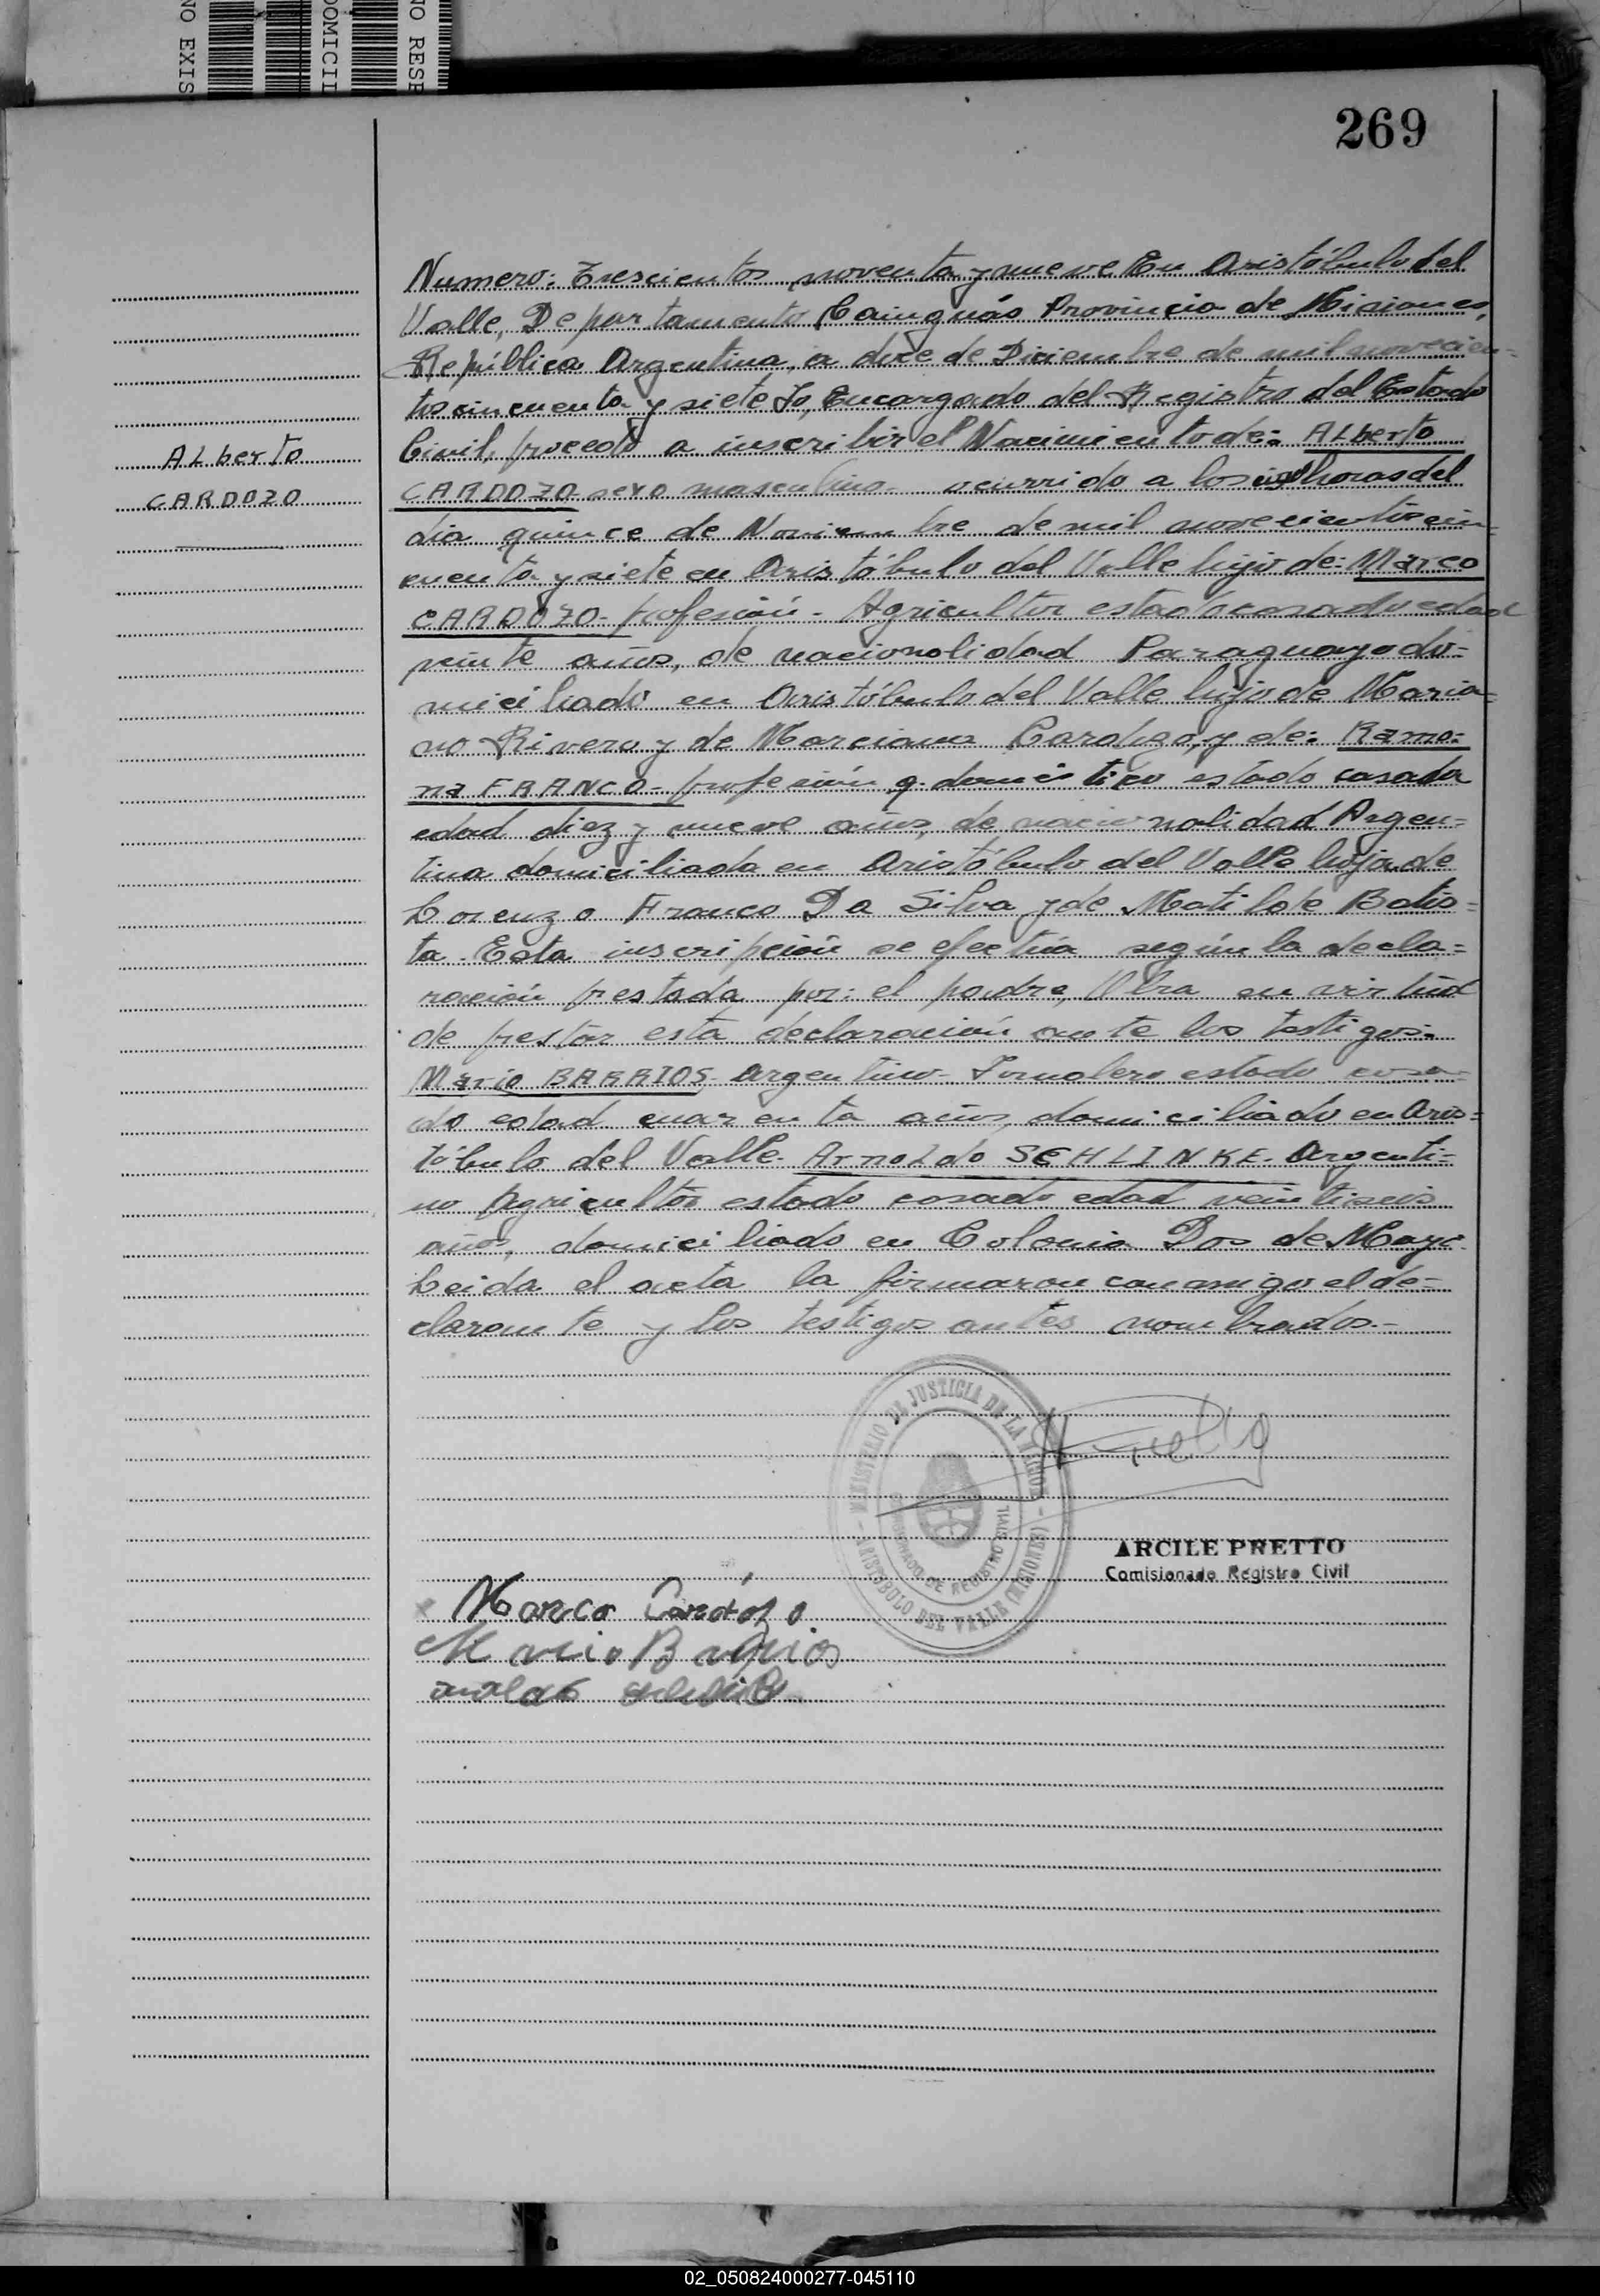 NO EXIS
DOMICIL
NO RESE
269
ALberto
CARDOZO
Numero: Trescientos noventa y nueve En Aristóbulo del
Valle, Departamento Cainguás Provincia de Misiones,
República Argentina, a doce de Diciembre de mil novecien=
tos cincuenta y siete Yo, Encargado del Registro del Estado
Civil, procedo a inscribir el Nacimiento de: ALberto
CARDOZO sexo masculino- ocurrido a las horas del
dia quince de Noviembre de mil novecientos cin-
cuenta y siete en Aristóbulo del Valle hijo de: Marco
CARDOZO- profesión- Agricultor estado casado edad
veinte años, de nacionalidad Paraguayo do=
miciliado en Aristóbulo del Valle hijo de Maria=
no Rivero y de Marciana Cardozo, y de: Ramo=
na FRANCO- profesión q. domestico estado casada
edad diez y nueve años, de nacionalidad Argen=
tina domiciliada en Aristóbulo del Valle hija de
Lorenzo Franco Da Silva y de Matilde Batis=
ta. Esta inscripción se efectúa según la decla=
ración prestada por: el padre, Obra en virtud
de prestar esta declaración ante los testigos:
Mario BARRIOS- Argentino- Jornalero estado casa=
do edad cuarenta años, domiciliado en Aris=
tóbulo del Valle. ArnoLdo SCHLINKE. Argenti=
no Agricultor estado casado edad veintiseis
años, domiciliado en Colonia Dos de Mayo.
Leida el acta la firmaron conmigo el de=
clarante y los testigos antes nombrados.-
MINISTERIO DE JUSTICIA DE LA NACION
ARISTOBULO DEL VALLE (MISIONES)
DE REGISTRO CIVIL
ARCILE PRETTO
Comisionado Registro Civil
Marco Cardózo
Mario Barrios
02_050824000277-045110